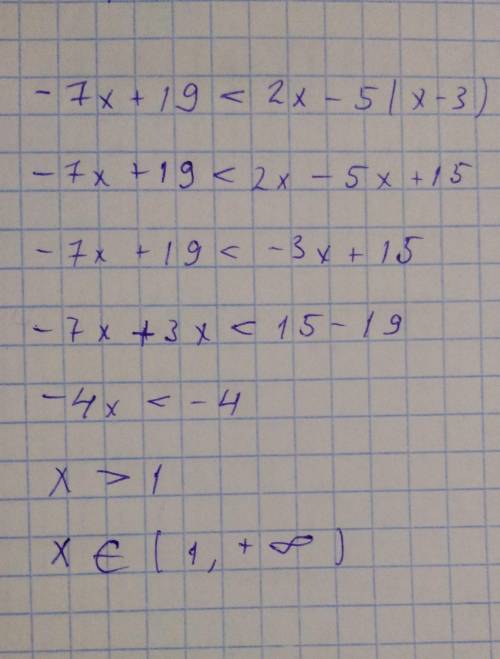 -7x + 19 < 2x - 5(x-3)
-7x + 19 < 2x - 5x + 15
-7x + 19 < -3x + 15
-7x + 3x < 15 - 19
-4x < -4
x > 1
x ∈ (1, +∞)